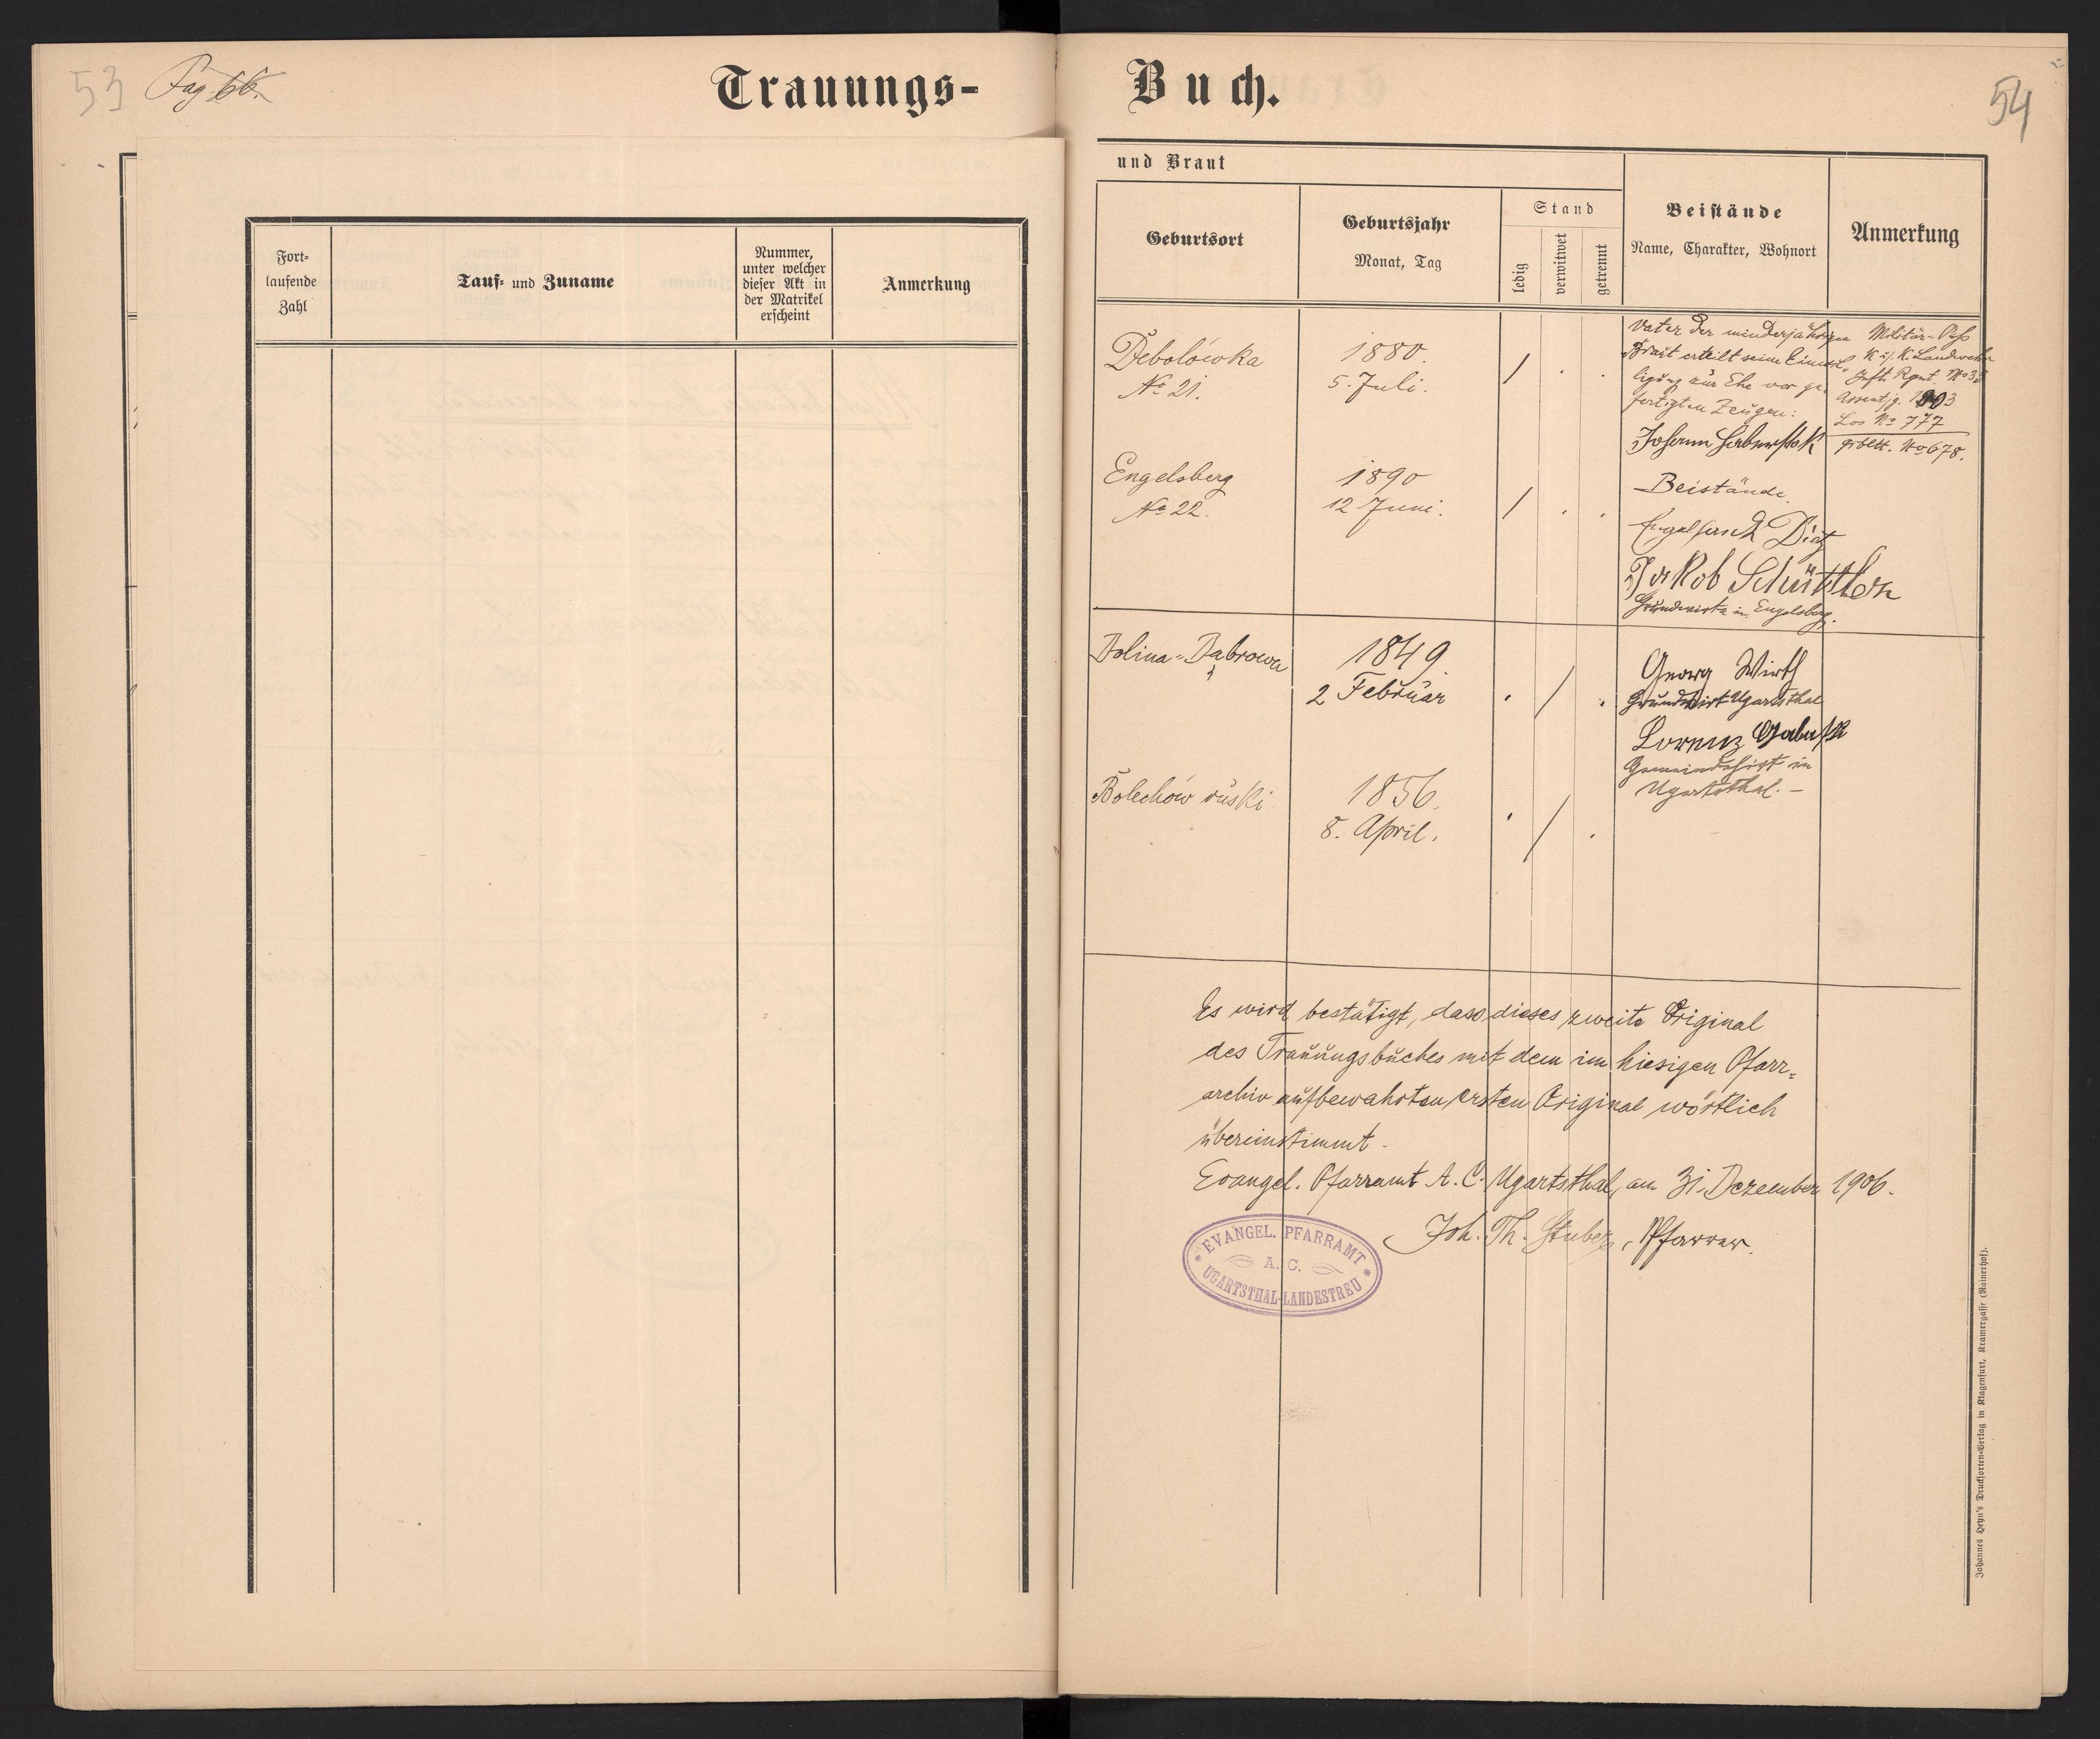 53 Pag. 66.
Trauungs-
Fort-
laufende
Zahl
Tauf- und Zuname
Nummer,
unter welcher
dieser Akt in
der Matrikel
erscheint
Anmerkung
Buch.
54
und Braut
Geburtsort
Geburtsjahr
Monat, Tag
Stand
ledig
verwitwet
getrennt
Beistände
Name, Charakter, Wohnort
Anmerkung
Debolówka
No 21.
1880.
5. Juli.
/ . .
Vater der minderjährigen
Braut erteilt seine Einwil-
ligung zur Ehe vor ge-
fertigten Zeugen:
Johann
Militär-Paß
K. k. Landwehr
Inft. Rgmt. No 33
Assentjg. 1903
Los No 777
No 678.
Engelsberg
No 22.
1890
12 Juni.
/ . .
Beistände.
Dietz
Jakob Schüttler
Grundwirte in Engelsberg.
Dolina-Dąbrowa
1849
2 Februar
. / .
Georg Wirth
Grundwirt Ugartsthal
Lorenz
Gemeindehirt in
Ugartsthal. –
Bolechów ruski
1856.
8. April.
. / .
Es wird bestätigt, dass dieses zweite Original
des Trauungsbuches mit dem im hiesigen Pfarr-
archiv aufbewahrten ersten Original wörtlich
übereinstimmt.
Evangel. Pfarramt A. C. Ugartsthal, am 31. Dezember 1906.
Joh. Th. Stuber, Pfarrer.
EVANGEL. PFARRAMT
A. C.
UGARTSTHAL-LANDESTREU
Johannes Heyn's Drucksorten-Verlag in Klagenfurt, Kramergasse (Rainerhof).